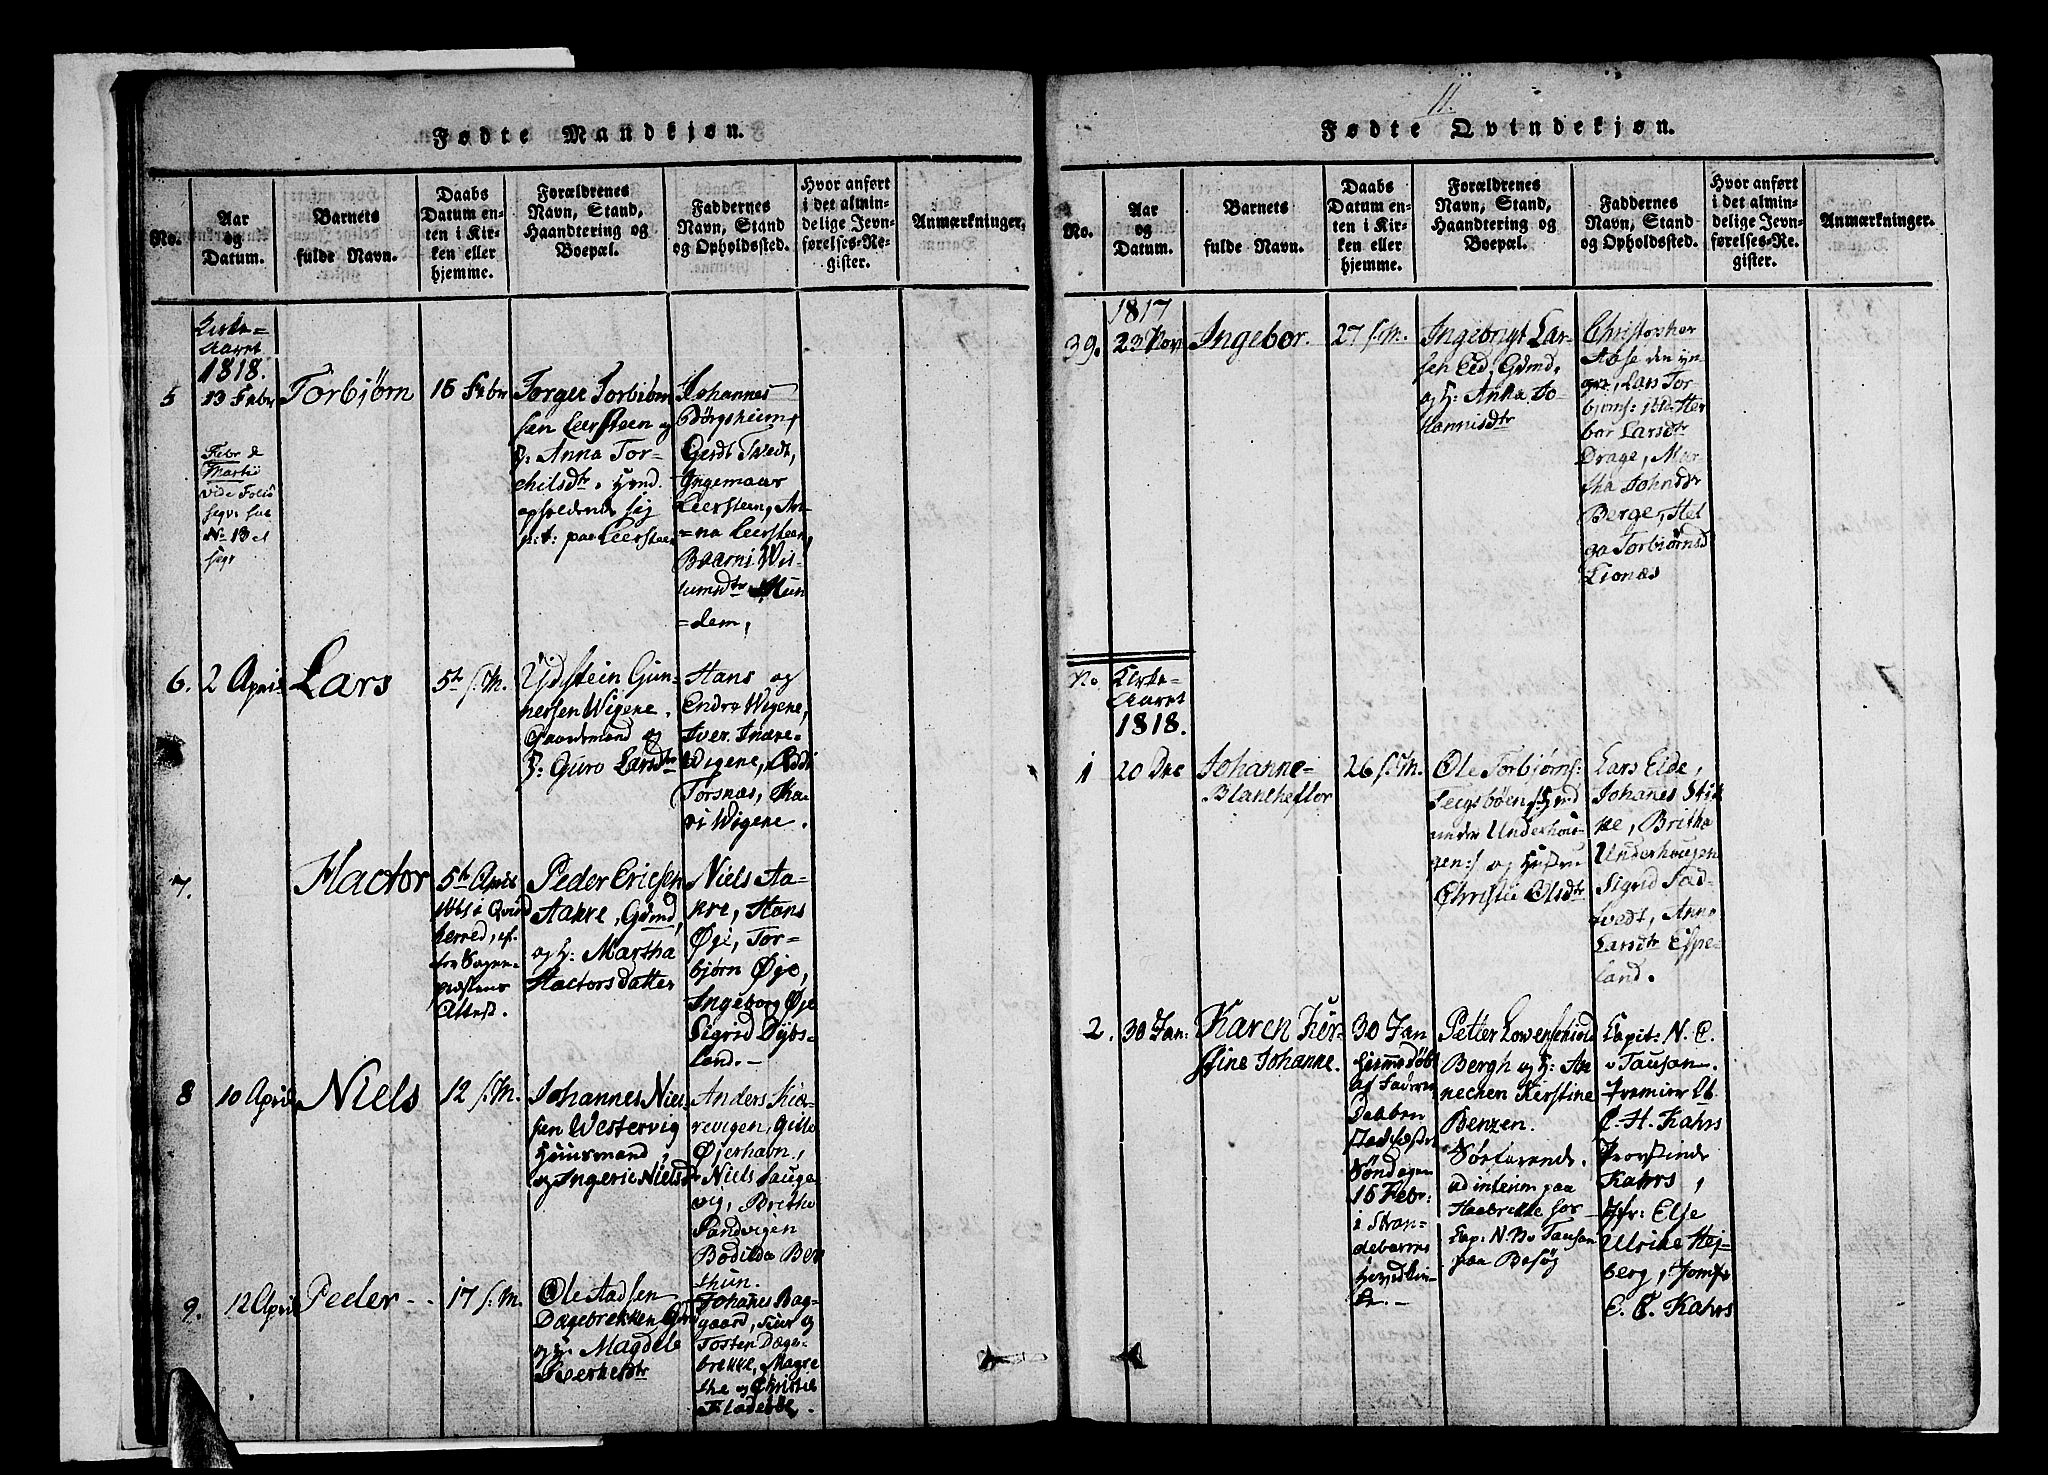 Fødte Mandkjøn.
No.
Aar
og
Datum.
Barnets
fulde Navn.
Daabs
Datum en-
ten i Kir-
ken eller
hjemme.
Forældrenes
Navn, Stand,
Haandtering og
Boepæl.
Faddernes
Navn, Stand
og Opholdssted.
Hvor anført
i det almin-
delige Jevn-
førelses-Re-
gister.
Anmærkninger.
Kirke-
Aaret
1818.
5
13 Febr
Febr &
Martii
vide Folio
No 13 et
Torbjørn
15 Febr
Torger Torbiørn
sen Leersteen og
H: Anna Tor-
chilsdtr. Hmd.
opholdende sig
p:t: paa Leersteen
Johannes
Børgsheim,
Gerdt Tvedt,
Ingemaar
Leersteen, An-
=na Leersteen,
Baarni Wil-
lumsdtr Mun
=dem,
6.
2 April
Lars
5te s. M.
Udstein Gun-
nersen Wigene.
Gaardmand og
H: Guro Larsdtr
Hans og
Endre Wigene,
Iver Indre-
Wigene,
Torsnæs, Ka-
ri Wigene.
7.
Hactor
5te April
døbt i Qvind
herred, ef-
ter Sogne-
præstens
Attest.
Peder Ericsen
Aakre, Gdmd,
og H: Martha
Hactorsdatter
Niels Aa-
kre, Hans
Øje, Tor-
bjørn Øje,
Ingeborg Øje
Sigrid Dybs-
land.-
8
10 April
Niels
12 s. M.
Johannes Niel-
sen Westervig
Huusmand,
og Ingerie Nielsd
Anders Kior-
revigen, Gitle
Øjerhavn,
Niels Hauge
vig, Brithe
Sandvigen
Bodilda Ber
thun.
9.
12 April
Peder
17 s. M.
Ole Aadsen
Dægebrekken Gmd
og H: Magdele
Berkesdtr
Johanes Bag-
gaard, Siur og
Tosten Dæge-
brekke, Magre
the og Christie
Fladebøe.
11.
Fødte Qvindekjøn.
No.
Aar
og
Datum.
Barnets
fulde Navn.
Daabs
Datum en-
ten i Kir-
ken eller
hjemme.
Forældrenes
Navn, Stand,
Haandtering og
Boepæl.
Faddernes
Navn, Stand
og Opholdssted.
Hvor anført
i det almin-
delige Jevn-
førelses-Re-
gister.
Anmærkninger.
1817
39.
23 Nov
Ingebor.
27 s. M.
Ingebrigt Lar-
sen Eid, Gdmd,
og H: Anna Jo-
hannisdtr
Christopher
den yn
gre, Lars Tor-
bjørns: ibid. Her
bor Larsdtr
Drage, Mar-
tha Johnsdtr
Berge, Hel
ga Torbiørnsd
Lionæs
No.
Kirke-
Aaret
1818.
1
20 Dec
Johanne-
Blancheflor
26 s. M.
Ole Torbjørns:
Teigsbøen /: Hmd
under Underhou-
gen :/ og Hustru
Christie Olsdtr
Lars Eide,
Johanes Stik
ke, Britha
Underhougen
Sigrid Sad-
tvedt, Anna
Larsdtr Espe-
land.
2.
30 Jan:
Karen Ker-
stine Johanne.
30 Jan
hiemmedøbt
af Faderen
Daaben
stadfæstet
Søndagen
15 Febr:
i Stran-
debarms
Hovedkir-
ke.-
Petter Lowenskiold
Bergh og H: An-
nechen Kerstine
Benzen.
Søefarende.
ad interim paa
Haabrekke hos
Cap: N. B. v Tausan
paa Besøg
Capit: N. C.
v Tausan.
Premier Lt.
C. H. Kahrs
Provstinde
Kahrs,
Jfr: Else
Ulriche Hej-
berg, Jomfr
E. C. Kahrs